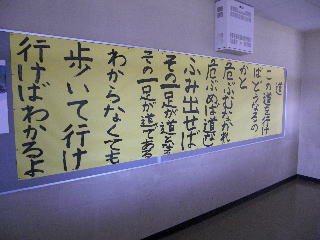 道
この道を行けば
どうなるの
かと
危ぶむなかれ
危ぶめば道なし
ふみ出せば
その一足が道となる
その一足が道である
わからなくても
歩いて行け
行けばわかるよ